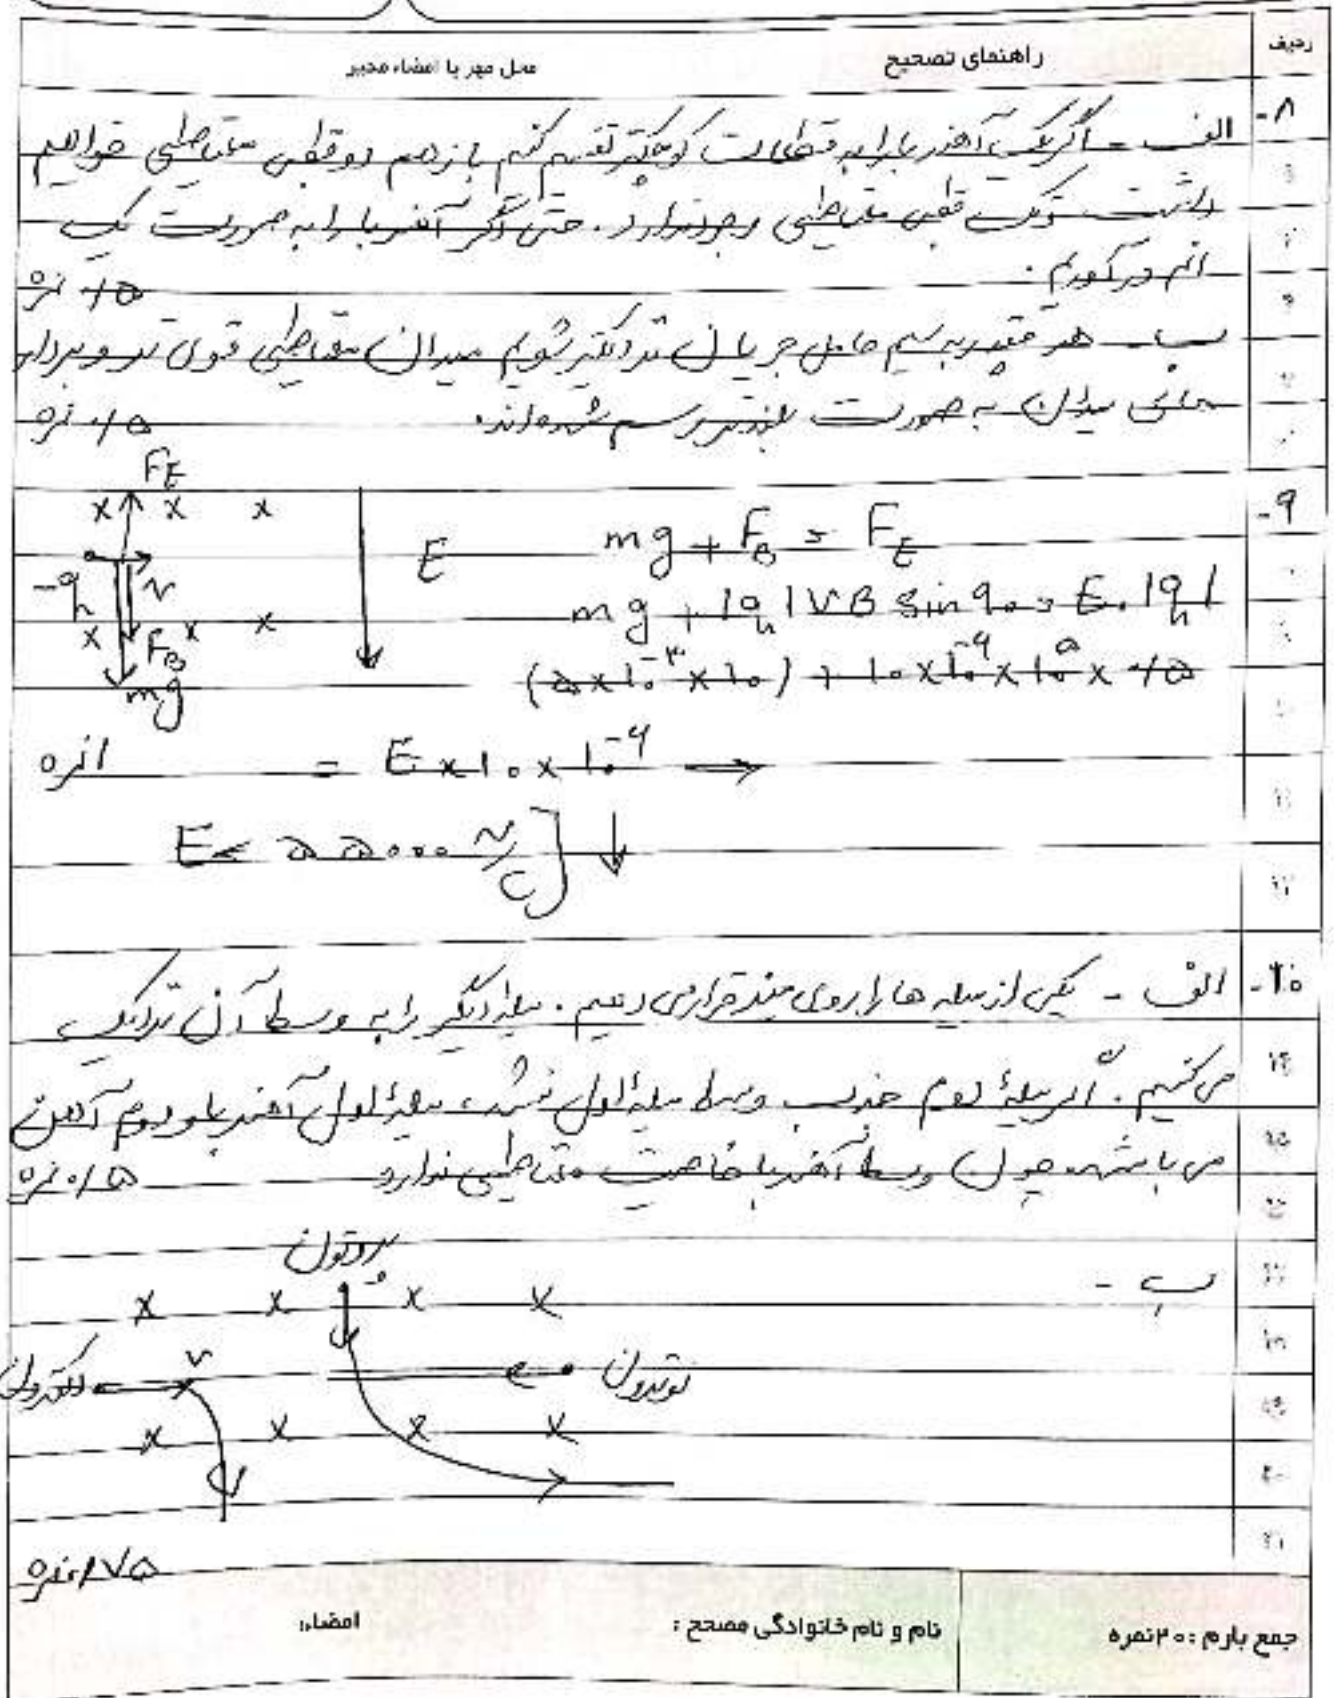 ردیف
راهنمای تصحیح
محل مهر یا امضاء مدیر
۸- الف - اگر یک آهنربا را به قطعات کوچکتر تقسیم کنیم باز هم دو قطبی مغناطیسی خواهیم
داشت و تک قطبی مغناطیسی وجود ندارد. حتی اگر آهنربا را به صورت یک
اتم در آوریم.
۰/۵ نمره
ب - هر قدر به سیم حامل جریان نزدیکتر شویم میدان مغناطیسی قوی تر و بردار
های میدان به صورت بلندتر رسم شده‌اند.
۰/۵ نمره
۹-
F_E
x x x
-q v E
x x x
F_B
mg
mg + F_B = F_E
mg + |q|VB sin ۹۰ = E.|q|
(۵×۱۰^-۳ ×۱۰) + ۱۰×۱۰^-۶ ×۱۰^۵ × ۰/۵
= E×۱۰×۱۰^-۶ →
۱ نمره
E = ۵۵۰۰۰ N/C ] ↓
۱۰- الف - یکی از میله ها را روی میز قرار می دهیم. میله دیگر را به وسط آن نزدیک
می کنیم. اگر میلهٔ دوم جذب وسط میله اول نشد، میلهٔ اول آهنربا و دوم آهن
می باشد. چون وسط آهنربا خاصیت مغناطیسی ندارد
۰/۵ نمره
ب -
پروتون
x x x x
الکترون v نوترون
x x x x
۰/۷۵ نمره
جمع بارم : ۲۰ نمره
نام و نام خانوادگی مصحح :
امضاء: